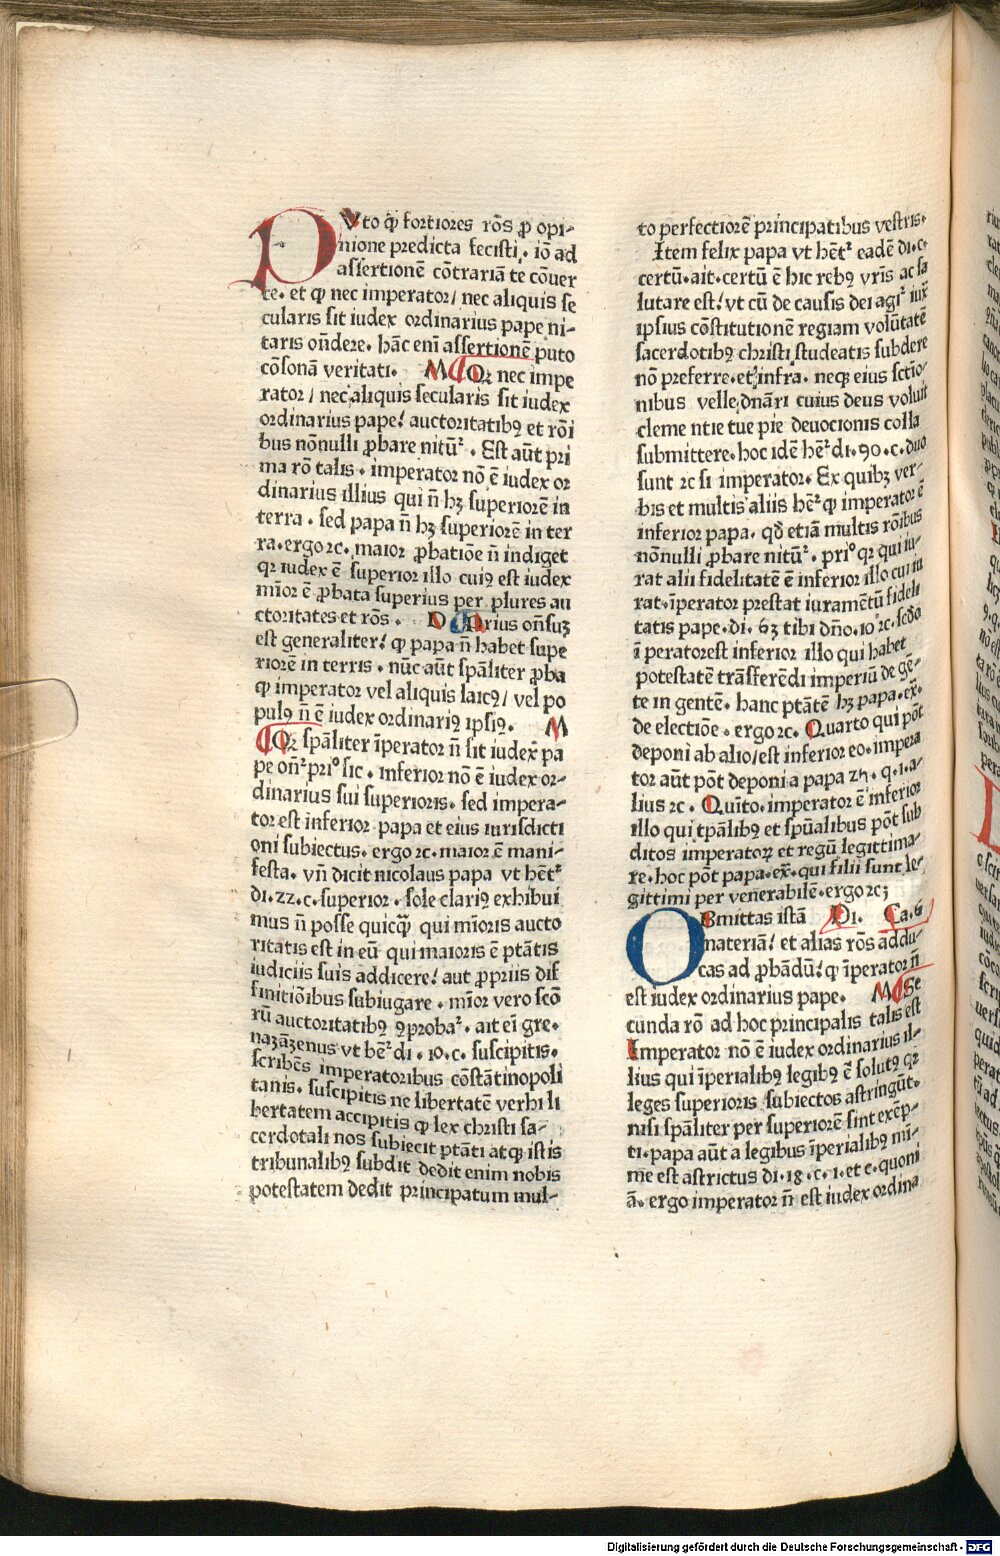 PVto ꝙ fortiores rōs ꝓ opi-
nione predicta fecisti. iō ad
assertionē cōtrariā te cōuer
te. et ꝙ nec imperator/ nec aliquis se
cularis sit iudex ordinarius pape ni-
taris oñdere. hāc eni assertionē puto
cōsonā veritati. M Qꝛ nec impe
rator / nec aliquis secularis sit iudex
ordinarius pape! auctoritatibꝰ et rōi
bus nōnulli ꝓbare nitūᷣ. Est aūt pri
ma rō talis. imperator nō ē iudex or
dinarius illius qui ñ hꝫ superiorē in
terra. sed papa ñ hꝫ superiorē in ter
ra. ergo ꝛc. maior ꝓbatiōe ñ indiget
qꝛ iudex ē superior illo cuiꝰ est iudex
mīor ē ꝓbata superius per plures au
ctoritates et rōs. D Prius oñsuꝫ
est generaliter! ꝙ papa ñ habet supe
riorē in terris. nūc aūt spāliter ꝓba
ꝙ imperator vel aliquis laicꝰ/ vel po
pulꝰ ñ ē iudex ordinariꝰ ipsiꝰ. M
Qꝛ spāliter īperator ñ sit iudex pa
pe oñᷣ priᵒ sic. inferior nō ē iudex or-
dinarius sui superioris. sed impera-
tor est inferior papa et eius iurisdicti
oni subiectus. ergo ꝛc. maior ē mani-
festa. vñ dicit nicolaus papa vt hētᷣ
di. 22. c. superior. sole clariꝰ exhibui
mus ñ posse quicꝙ̄ qui mioris aucto
ritatis est in eū qui maioris ē ptātis
iudiciis suis addicere! aut ꝓpriis dif
finitiōibus subiugare. mīor vero scō
rū auctoritatibꝰ ꝯprobaᷣ. ait ei gre.
nazāzenus vt hēᷣ di. 10. c. suscipitis.
scribēs imperatoribus cōstātinopoli
tanis. suscipitis ne libertatē verbi li
bertatem accipitis ꝙ lex christi sa-
cerdotali nos subiecit ptāti atqꝫ istis
tribunalibꝰ subdit dedit enim nobis
potestatem dedit principatum mul-
to perfectiorē principatibus vestris.
Item felix papa vt hētᷣ eadē di. c.
certū. ait. certū ē hic rebꝰ vrīs ac sa
lutare est! vt cū de causis dei agiᷣ iux̄
ipsius cōstitutionē regiam volūtatē
sacerdotibꝰ christi studeatis subdere
nō preferre. et infra. neqꝫ eius sctīo-
nibus velle dnāri cuius deus voluit
cleme ntie tue pie deuocionis colla
submittere. hoc idē hēᷣ di. 90. c. duo
sunt ꝛc si imperator. Ex quibꝫ ver-
bis et multis aliis hēᷣ ꝙ imperator ē
inferior papa. qđ etiā multis rōibus
nōnulli ꝓbare nitūᷣ. priᵒ qꝛ qui iu-
rat alii fidelitatē ē inferior illo cui iu
rat. īperator prestat iuramētū fideli
tatis pape. di. 63 tibi dño. 10 ꝛc. scđo
ī peratorest inferior illo qui habet
potestatē trāsferēdi imperiū de gē-
te in gentē. hanc ptātē hꝫ papa. ex̄.
de electiōe. ergo ꝛc. Quarto qui pōt
deponi ab alio/ est inferior eo. impera
tor aūt pōt deponi a papa 24. q. 1. a-
lius ꝛc. Quīto. imperator ē inferior
illo qui tpālibꝰ et spūalibus pōt sub
ditos imperatorꝫ et regū legittima-
re. hoc pōt papa. ex̄. qui filii sunt le-
gittimi per venerabilē. ergo ꝛcꝫ
OBmittas istā Di. Ca. 6
materiā! et alias rōs addu-
cas ad ꝓbādū! ꝙ īperator ñ
est iudex ordinarius pape. M Se
cunda rō ad hoc principalis talis est
Imperator nō ē iudex ordinarius il-
lius qui īperialibꝰ legibꝰ ē solutꝰ qꝛ
leges superioris subiectos astringūt.
nisi spāliter per superiorē sint exēp-
ti. papa aūt a legibus īperialibꝰ mī-
me est astrictus di. 18. c. 1. et c. quoni
ā. ergo imperator ñ est iudex ordina
Digitalisierung gefördert durch die Deutsche Forschungsgemeinschaft - DFG